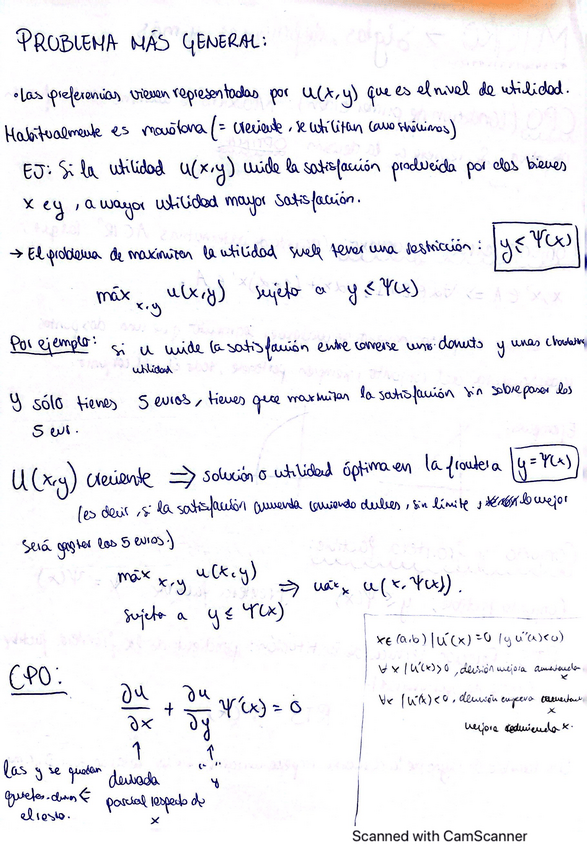 PROBLEMA MÁS GENERAL:
• Las preferencias vienen representadas por u(x,y) que es el nivel de utilidad.
Habitualmente es monótona (= creciente, se utilizan como sinónimos)
EJ: Si la utilidad u(x,y) mide la satisfacción producida por dos bienes
x e y, a mayor utilidad mayor satisfacción.
→ El problema de maximizar la utilidad suele tener una restricción: y ≤ Ψ(x)
máx x,y u(x,y) sujeto a y ≤ Ψ(x)
Por ejemplo: si u mide la satisfacción entre comerse unos donuts y unas
utilidad
y sólo tienes 5 euros, tienes que maximizar la satisfacción sin sobrepasar los
5 eur.
U(x,y) creciente ⇒ solución o utilidad óptima en la frontera y = Ψ(x)
(es decir, si la satisfacción aumenta comiendo dulces, sin límite, lo mejor
será gastar los 5 euros.)
máx x,y u(x,y) ⇒ máx x u(x, Ψ(x)).
sujeto a y ≤ Ψ(x)
CPO:
∂u/∂x + ∂u/∂y Ψ'(x) = 0
↑ ↑
derivada " " y
parcial respecto de
x
las y se quedan
quietas
el resto.
x∈(a,b) | u'(x)=0 (y u''(x)<0)
∀x | u'(x)>0, decisión mejora aumentando
x
∀x | u'(x)<0, decisión empeora aumentando
x
mejora reduciendo x.
Scanned with CamScanner